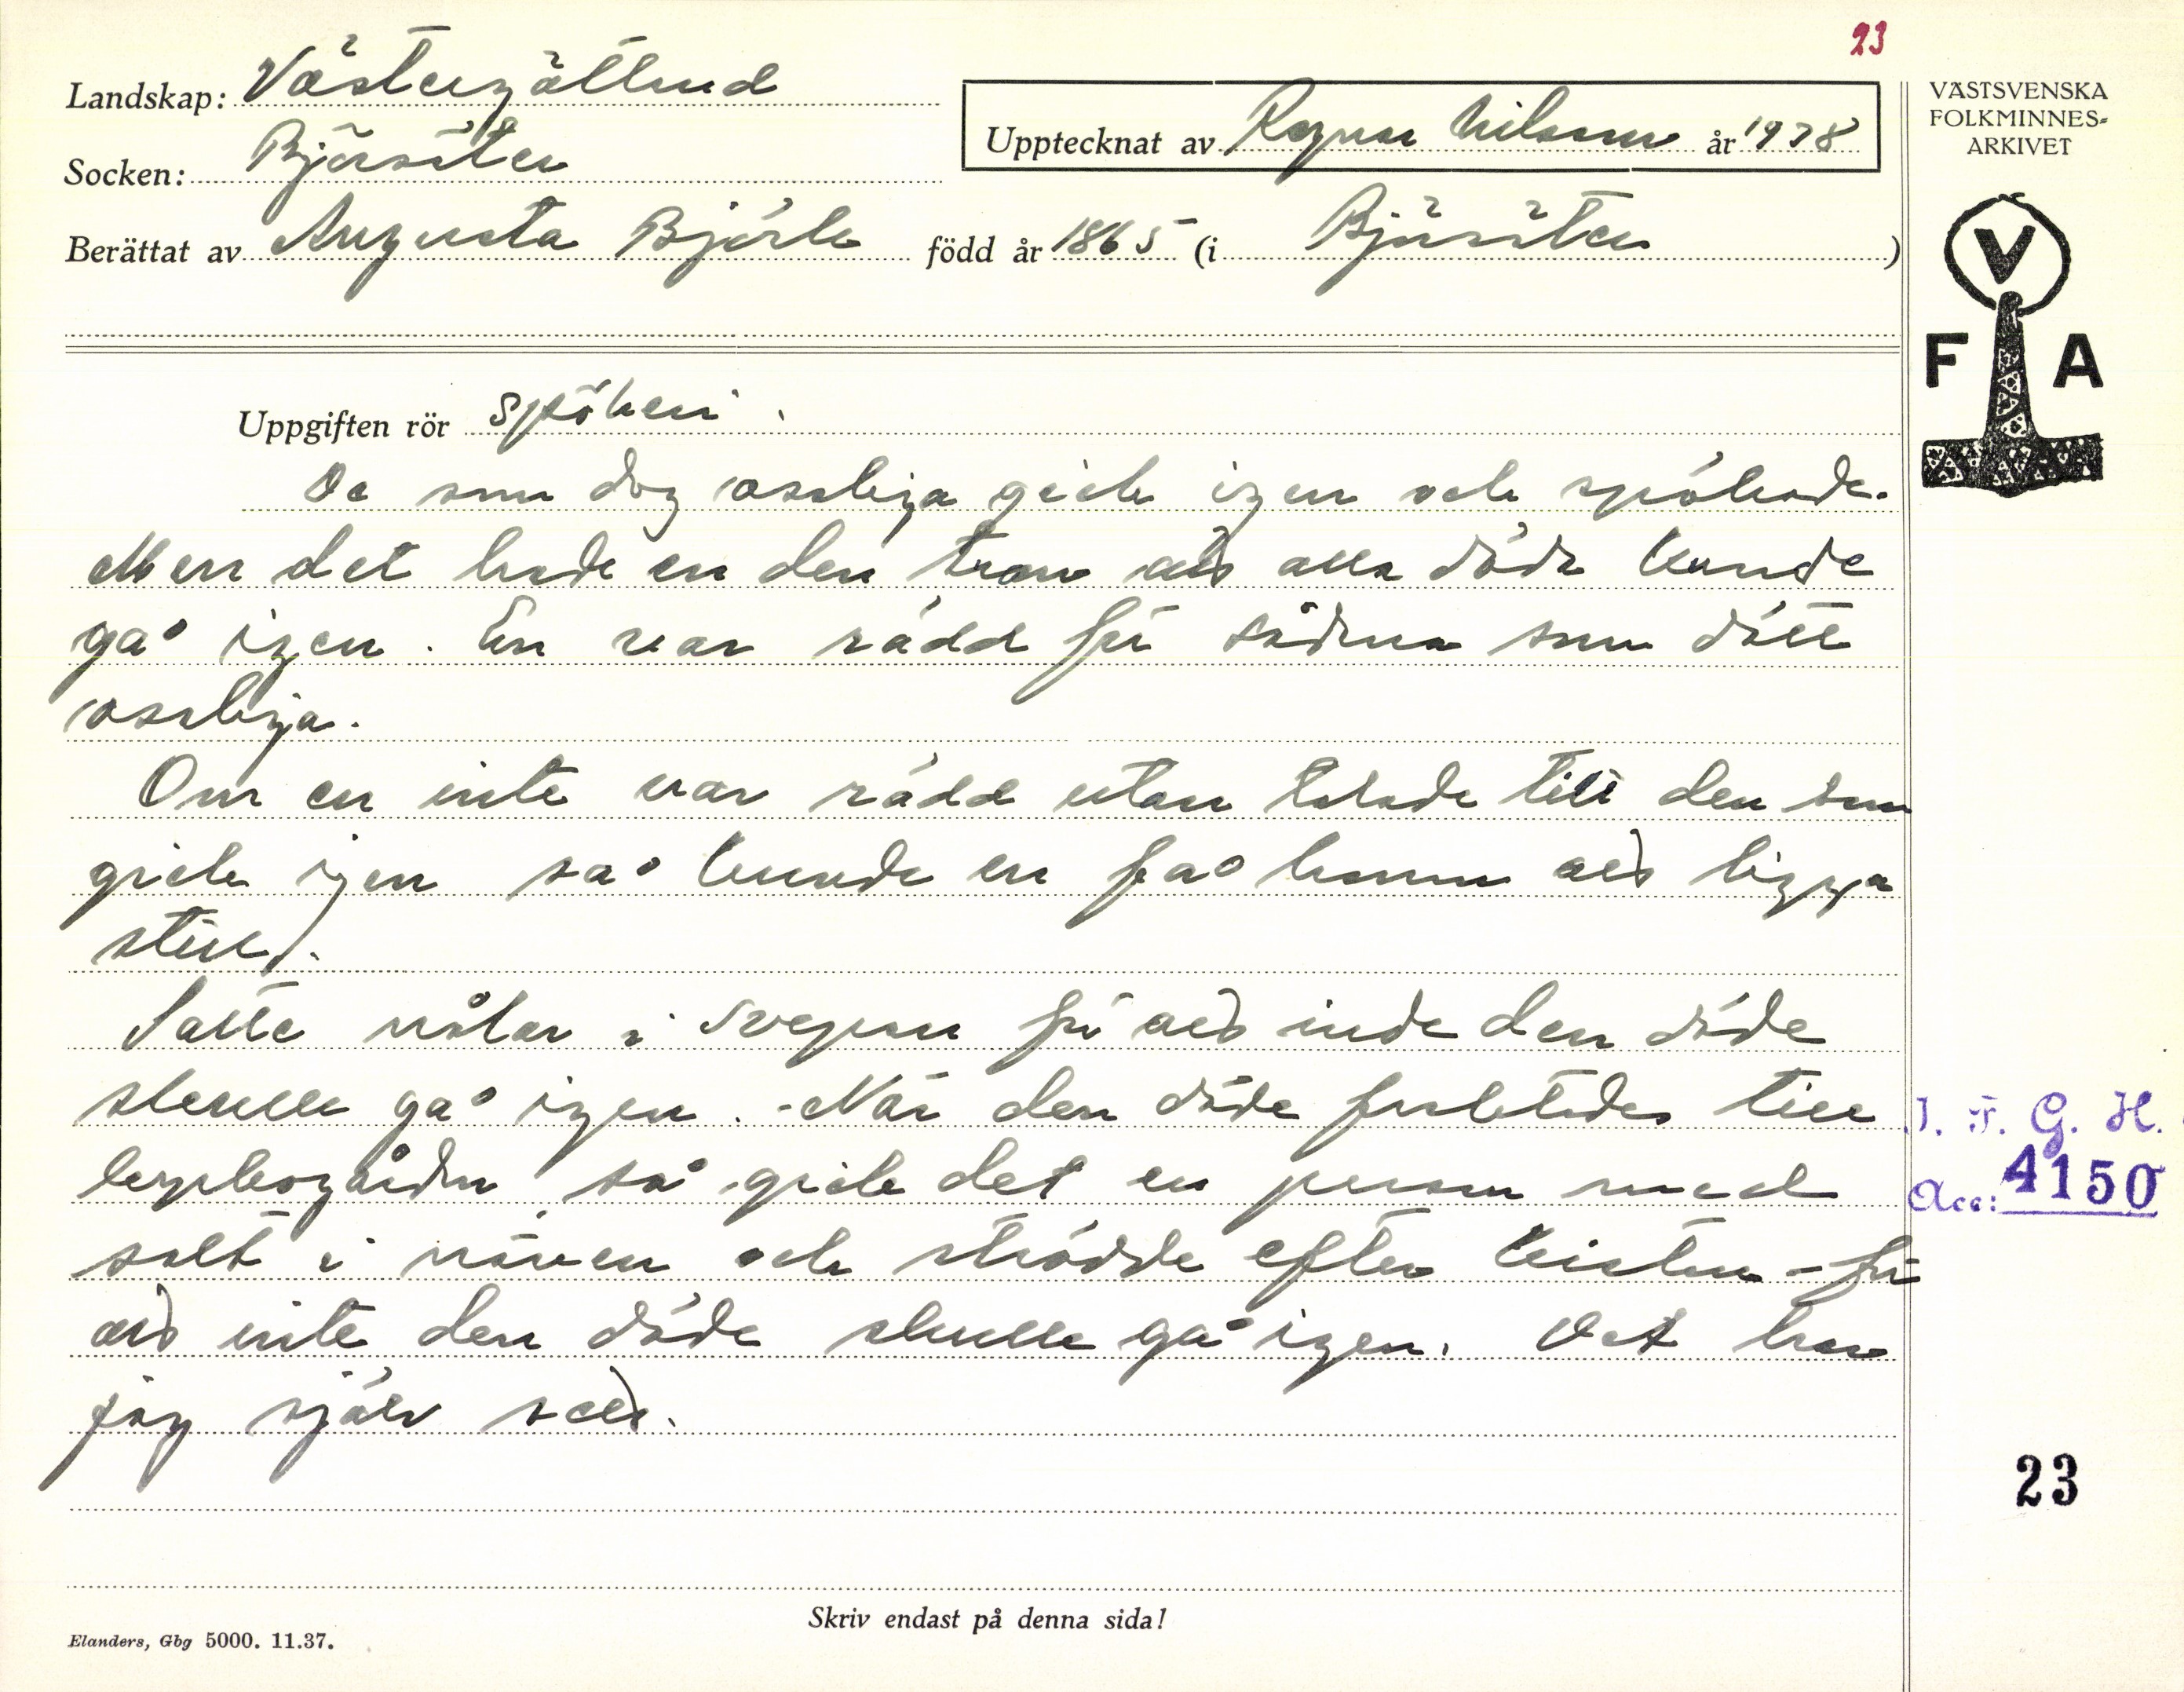 23
Landskap: Västergötland
Upptecknat av Ragnar Nilsson år 1938
VÄSTSVENSKA
FOLKMINNES-
ARKIVET
Socken: Björsäter
Berättat av Augusta Björk född år 1865 (i Björsäter)
V
F A
Uppgiften rör spökeri.
De som dog osaliga gick igen och spökade.
Men det hade en den tron att alla döda kunde
gå igen. En var rädd för sådana som dött
osaliga.
Om en inte var rädd utan talade till den som
gick igen så kunde en få honom att ligga
still.
Satte nålar i svepen för att inte den döde
skulle gå igen. - När den döde forslades till
kyrkogården så gick det en person med
salt i näven och strödde efter kistan - för
att inte den döde skulle gå igen. Det har
jag själv sett.
I. F. G. H.
Acc: 4150
23
Skriv endast på denna sida!
Elanders, Gbg 5000. 11.37.